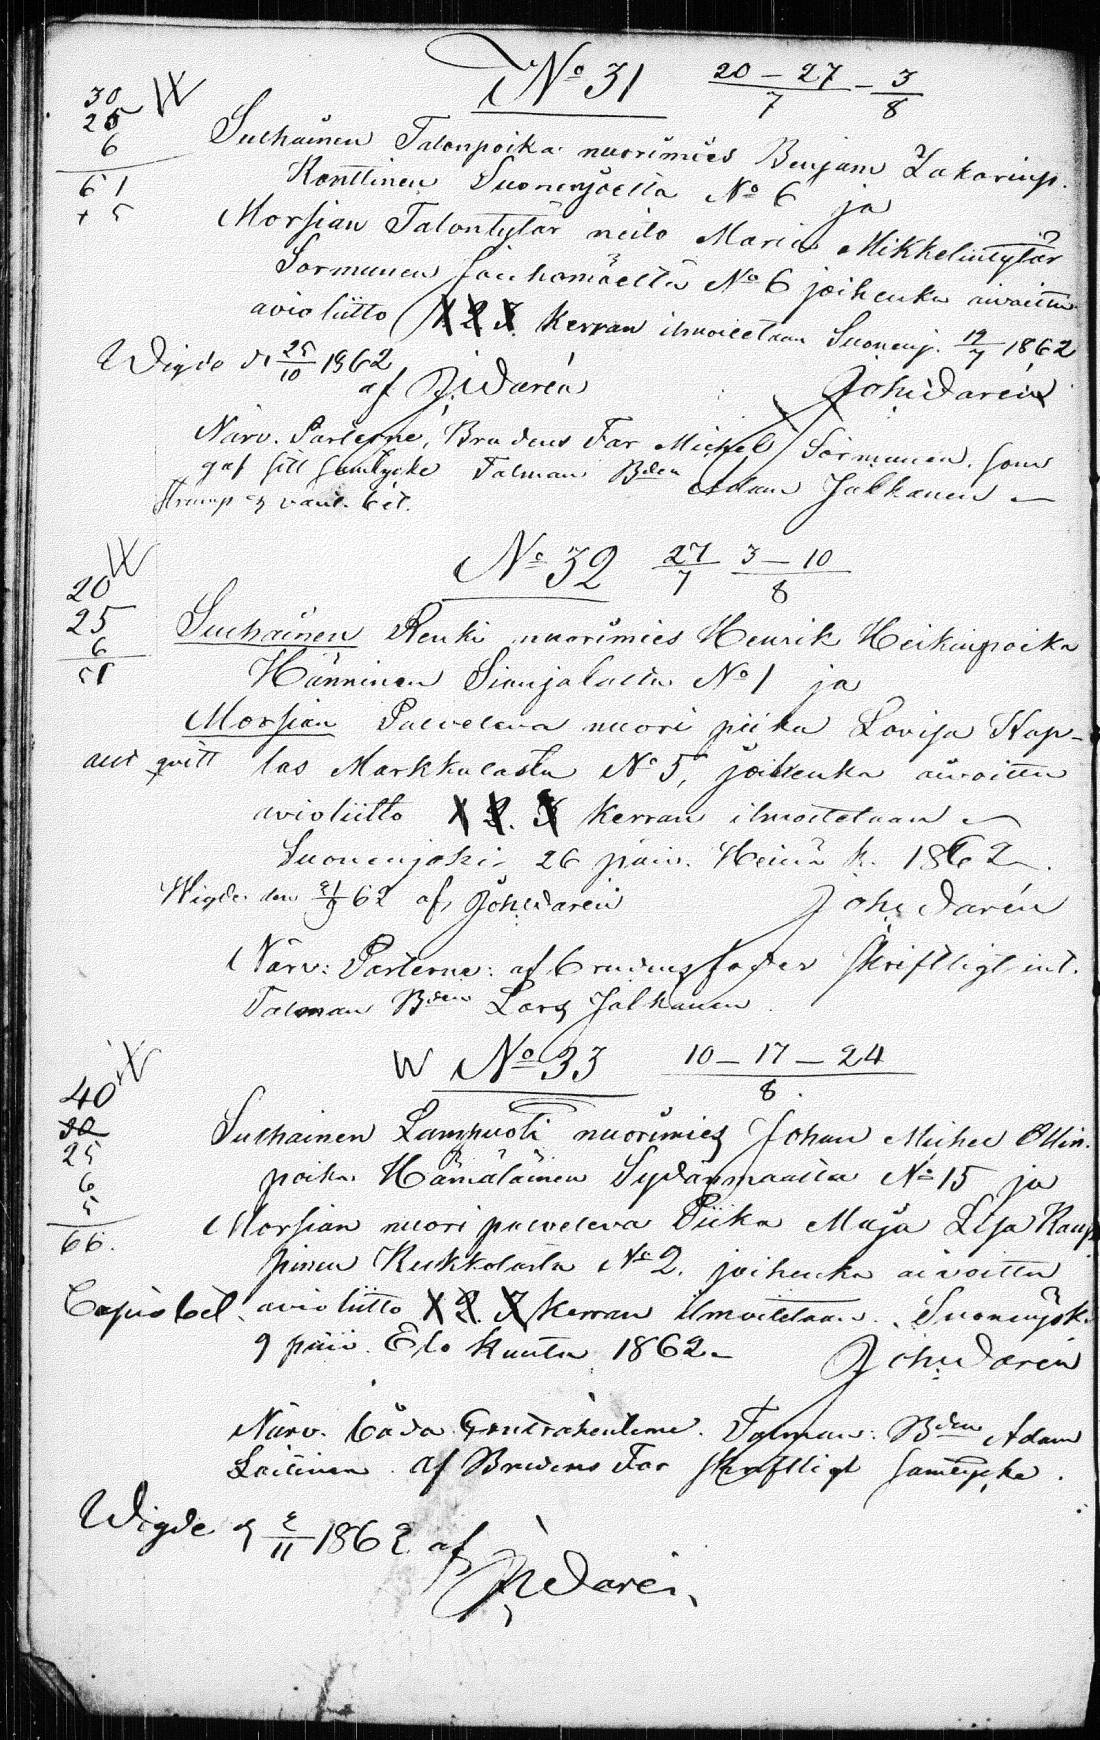 No 31 20 – 27 – 3
7 8
30
25
6
61
+ 5
Sulhainen Talonpoika nuorimies Benjam Zakarinp.
Konttinen Suonenjoelta No 6 ja
Morsian Talontytär neito Maria Mikkelintytär
Sormunen No 6 joihenka aivoittu
avioliitto 1. 2. 3. kerran ilmoitetaan Suonenj. 19/7 1862
Wigde d 25/10 1862
af J. Warén Joh. Warén
Närv. Parterne, Brudens Far Michel Sormunen. som
gaf sitt samtycke Talman Bden Adam Jalkanen
bet.
No 32 27 3 – 10
7 8
20
25
6
51
Sulhainen Renki nuorimies Henrik Heikinpoika
Hänninen Siinjalasta No 1 ja
Morsian Palveleva nuori piika Lovisa Hup-
qvitt las Markkalasta No 5, joihenka aivoittu
avioliitto 1. 2. 3. kerran ilmoitetaan
Suonenjoki 26 päiv. Heinä k. 1862.
Wigde den 21/9 62 af Joh. Warén Joh. Warén
Närv: Parterne: af brudens fader skriftligt int.
Talman Bden Lars Jalkanen.
W No 33 10 – 17 – 24
8.
40
30
25
6
5
66.
Sulhainen Lampuoti nuorimies Johan Michel Ollin-
poika Hämäläinen Sydänmaalta No 15 ja
Morsian nuori palveleva Piika Maja Lisa Raup
pinen Kukkolasta No 2. joihenka aivoittu
Copio bet. avioliitto 1. 2. 3. kerran ilmoitetaan. Suonenjok.
9 päiv. Elo kuuta 1862 Joh. Warén
Närv. båda Contrahenterne. Talman: Bden Adam
Laitinen. af Brudens Far skriftligt samtycke.
Wigde d 2/11 1862 af
J. Warén